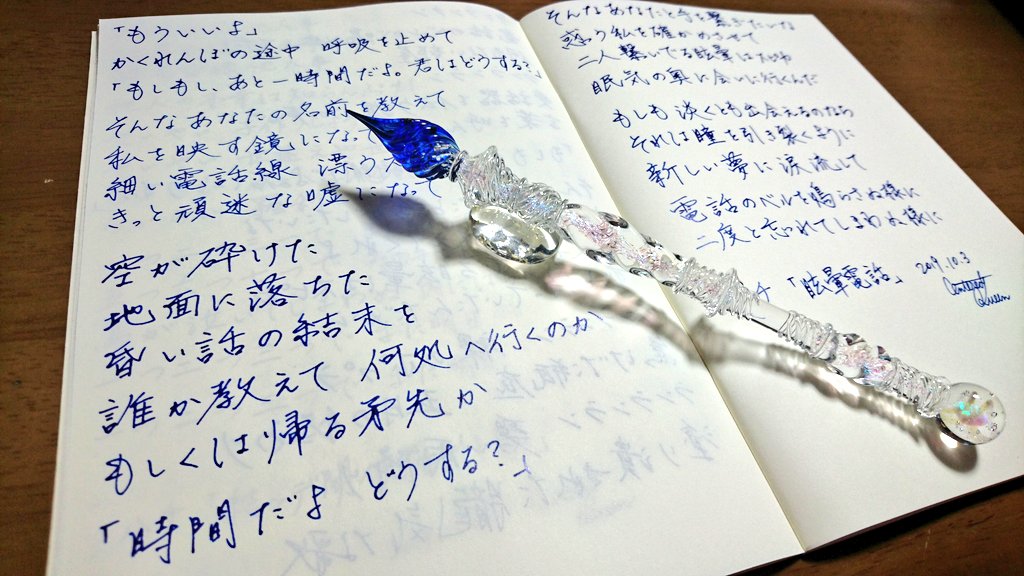 「もういいよ」
かくれんぼの途中 呼吸を止めて
「もしもし、あと一時間だよ。君はどうする?」
そんなあなたの名前を教えて
私を映す鏡になって
細い電話線 漂う
きっと頑迷な嘘になって
空が砕けた
地面に落ちた
昏い話の結末を
誰か教えて 何処へ行くのか
もしくは帰る矛先か
「時間だよ どうする?」
そんなあなたと今を繋ぎたいな
惑う私を確かめさせて
二人繋いでる眩暈は
眠気の奥に会いに行くんだ
もしも淡くとも出会えるのなら
それは瞳を引き裂く様に
新しい夢に涙流して
電話のベルを鳴らさぬ様に
二度と忘れてしまわぬ様に
「眩暈電話」 2019.10.3